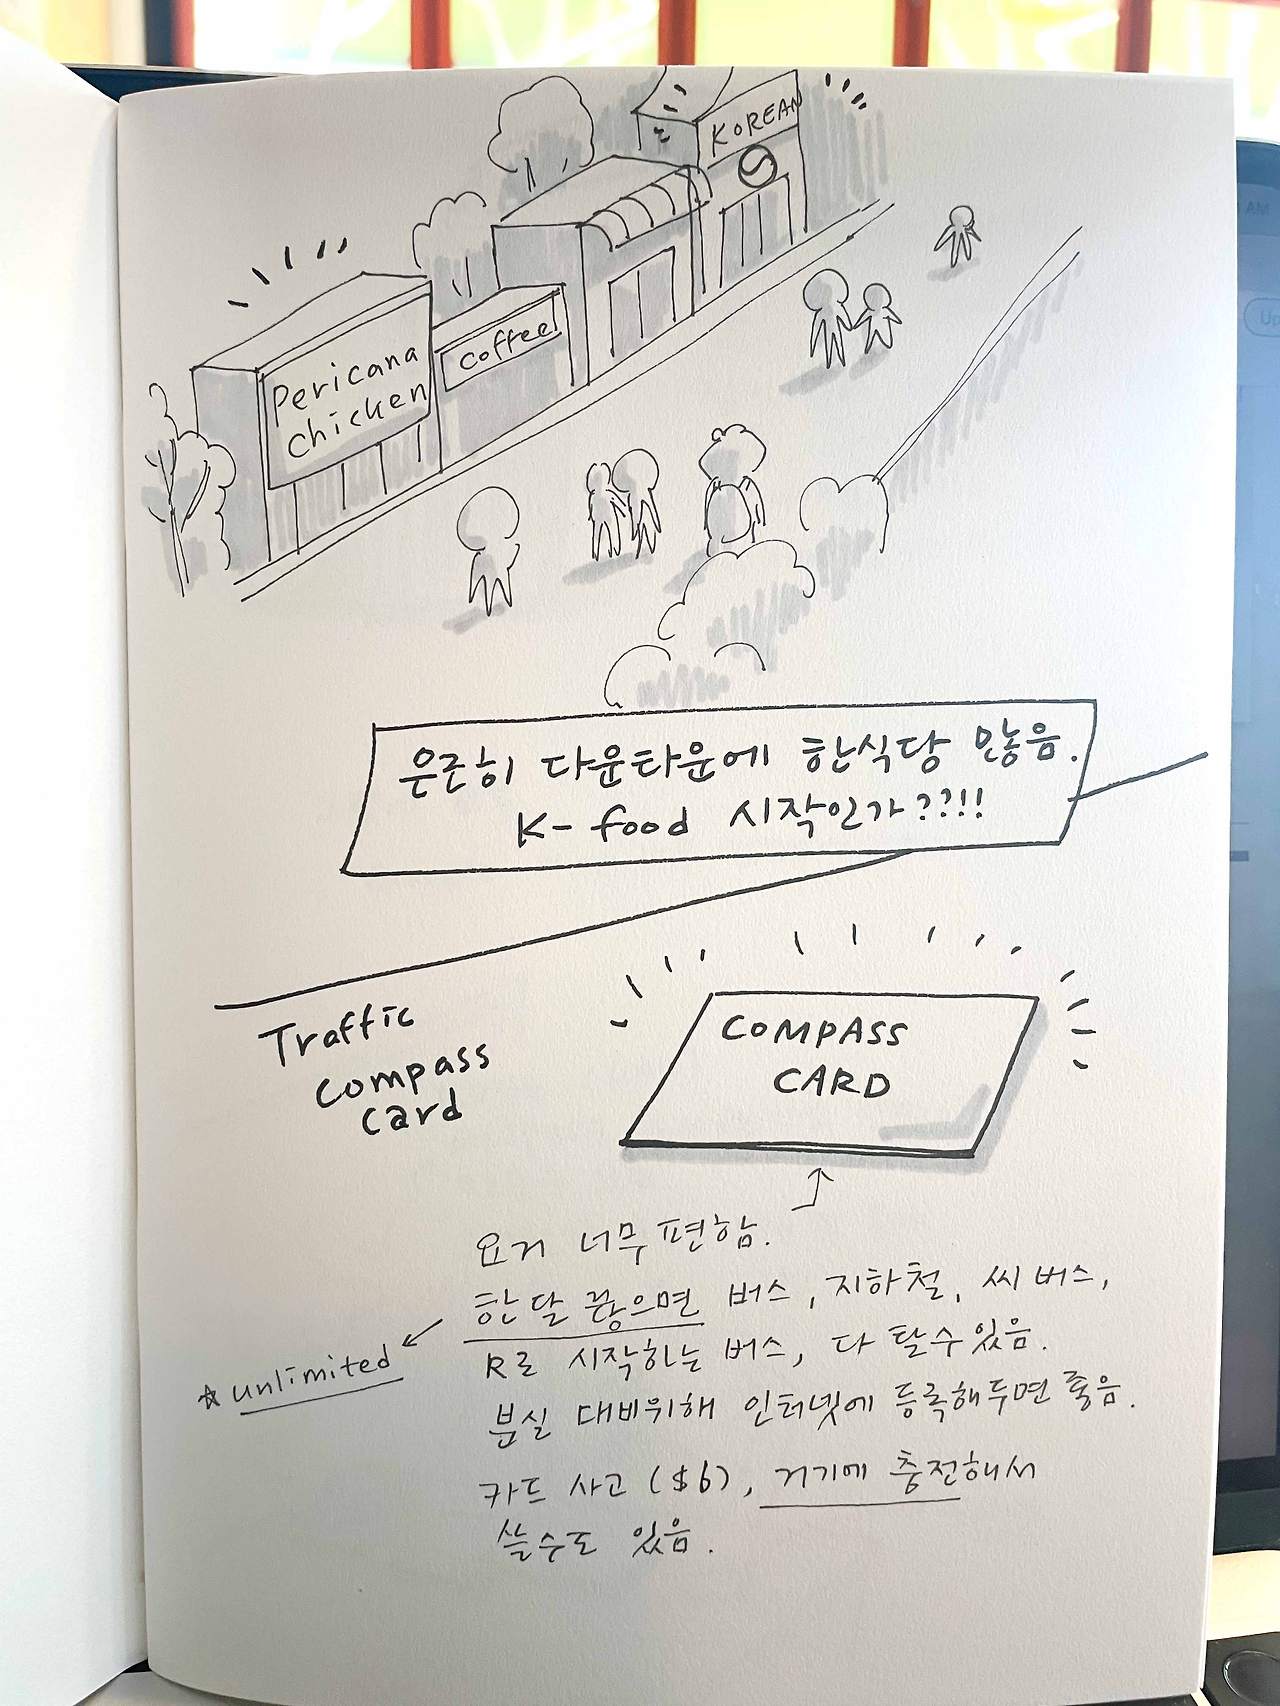 KOREAN
Pericana
chicken
coffee
은근히 다운타운에 한식당 많음.
K-food 시작인가???!!!
Traffic
compass
card
COMPASS
CARD
요거 너무 편함.
한달 끊으면 버스, 지하철, 씨버스,
☆ unlimited
R로 시작하는 버스, 다 탈수있음.
분실 대비위해 인터넷에 등록해두면 좋음.
카드 사고 ($6), 거기에 충전해서
쓸수도 있음.